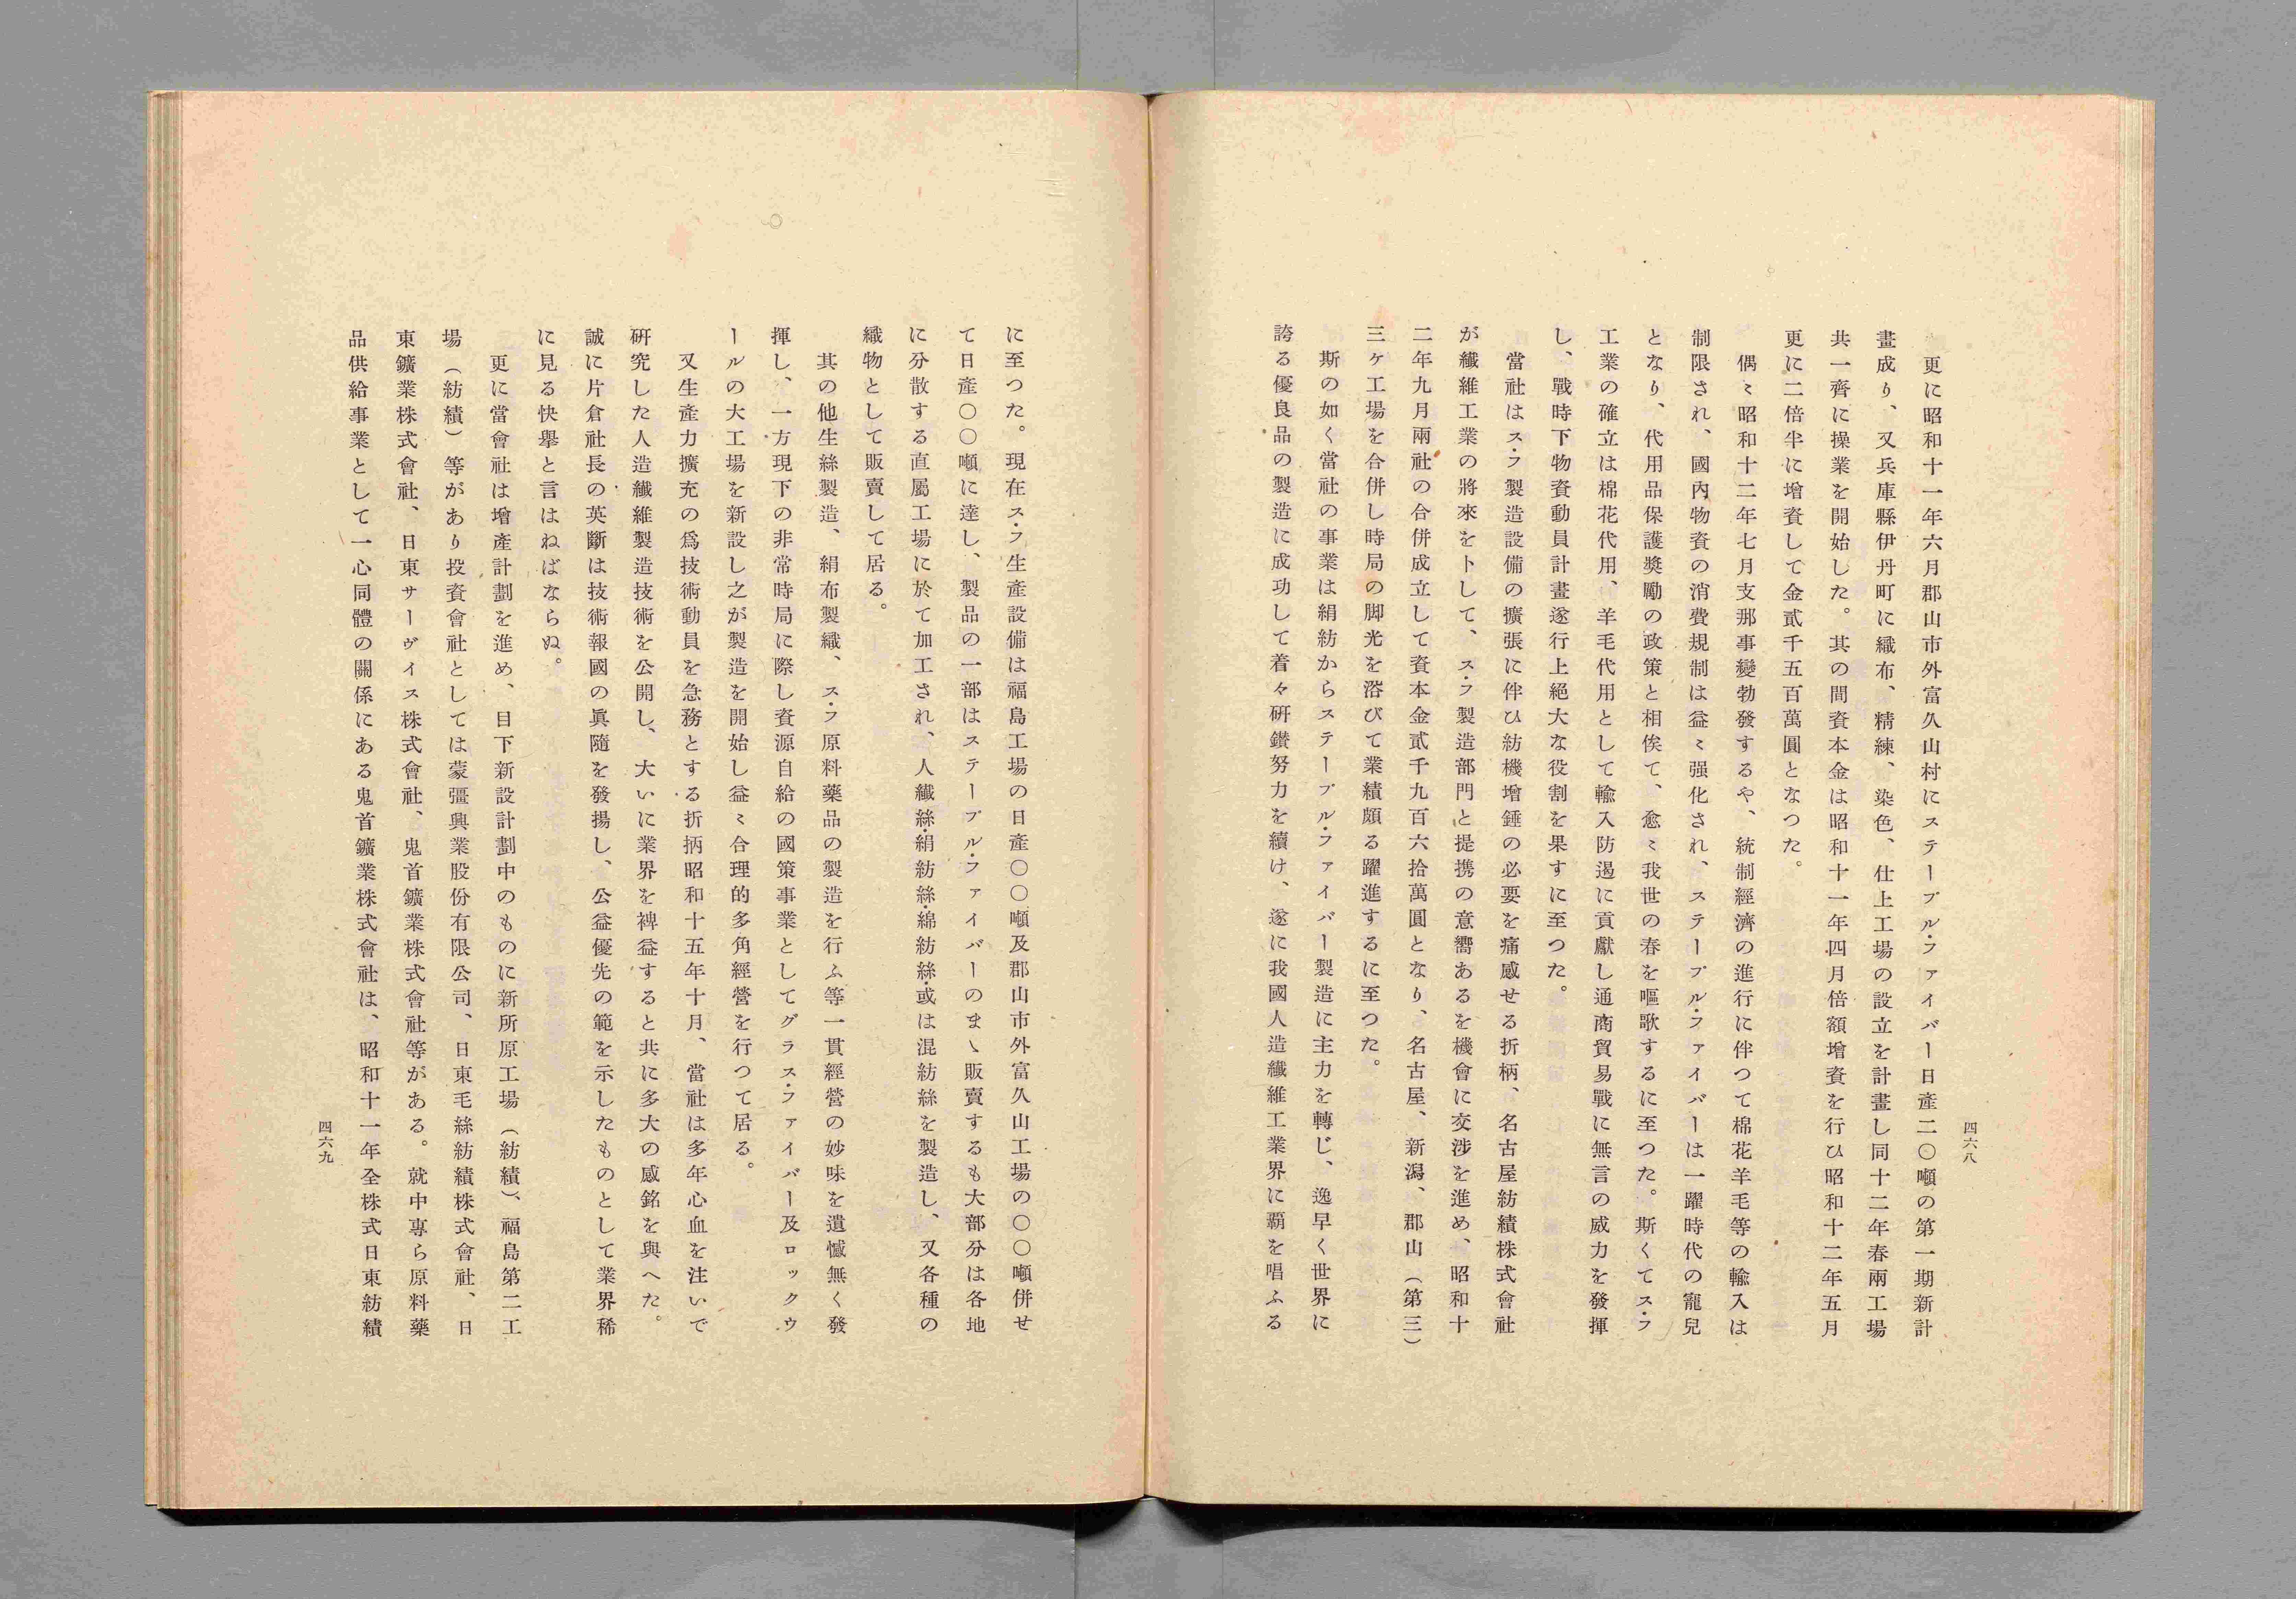 更に昭和十一年六月郡山市外富久山村にステープル・ファイバー日產二〇噸の第一期新計
畫成り、又兵庫縣伊丹町に織布、精練、染色、仕上工場の設立を計畫し同十二年春兩工場
共一齊に操業を開始した。其の間資本金は昭和十一年四月倍額增資を行ひ昭和十二年五月
更に二倍半に增資して金貳千五百萬圓となつた。
偶〻昭和十二年七月支那事變勃發するや、統制經濟の進行に伴つて棉花羊毛等の輸入は
制限され、國內物資の消費規制は益〻强化され、ステープル・ファイバーは一躍時代の寵兒
となり、代用品保護奬勵の政策と相俟て、愈〻我世の春を嘔歌するに至つた。斯くてス・フ
工業の確立は棉花代用、羊毛代用として輸入防遏に貢獻し通商貿易戰に無言の威力を發揮
し、戰時下物資動員計畫遂行上絕大な役割を果すに至つた。
當社はス・フ製造設備の擴張に伴ひ紡機增錘の必要を痛感せる折柄、名古屋紡績株式會社
が纖維工業の將來を卜して、ス・フ製造部門と提携の意嚮あるを機會に交涉を進め、昭和十
二年九月兩社の合併成立して資本金貳千九百六拾萬圓となり、名古屋、新潟、郡山（第三）
三ケ工場を合併し時局の脚光を浴びて業績頗る躍進するに至つた。
斯の如く當社の事業は絹紡からステープル・ファイバー製造に主力を轉じ、逸早く世界に
誇る優良品の製造に成功して着々硏鑚努力を續け、遂に我國人造纖維工業界に覇を唱ふる
四六八
に至つた。現在ス・フ生產設備は福島工場の日產〇〇噸及郡山市外富久山工場の〇〇噸併せ
て日產〇〇噸に達し、製品の一部はステープル・ファイバーのまゝ販賣するも大部分は各地
に分散する直屬工場に於て加工され、人纖絲・絹紡絲・綿紡絲・或は混紡絲を製造し、又各種の
織物として販賣して居る。
其の他生絲製造、絹布製織、ス・フ原料藥品の製造を行ふ等一貫經營の妙味を遺憾無く發
揮し、一方現下の非常時局に際し資源自給の國策事業としてグラス・ファイバー及ロックウ
ールの大工場を新設し之が製造を開始し益〻合理的多角經營を行つて居る。
又生產力擴充の爲技術動員を急務とする折柄昭和十五年十月、當社は多年心血を注いで
硏究した人造纖維製造技術を公開し、大いに業界を裨益すると共に多大の感銘を與へた。
誠に片倉社長の英斷は技術報國の眞隨を發揚し、公益優先の範を示したものとして業界稀
に見る快擧と言はねばならぬ。
更に當會社は增產計劃を進め、目下新設計劃中のものに新所原工場（紡績）、福島第二工
場（紡績）等があり投資會社としては蒙彊興業股份有限公司、日東毛絲紡績株式會社、日
東鑛業株式會社、日東サーヴィス株式會社、鬼首鑛業株式會社等がある。就中專ら原料藥
品供給事業として一心同體の關係にある鬼首鑛業株式會社は、昭和十一年全株式日東紡績
四六九